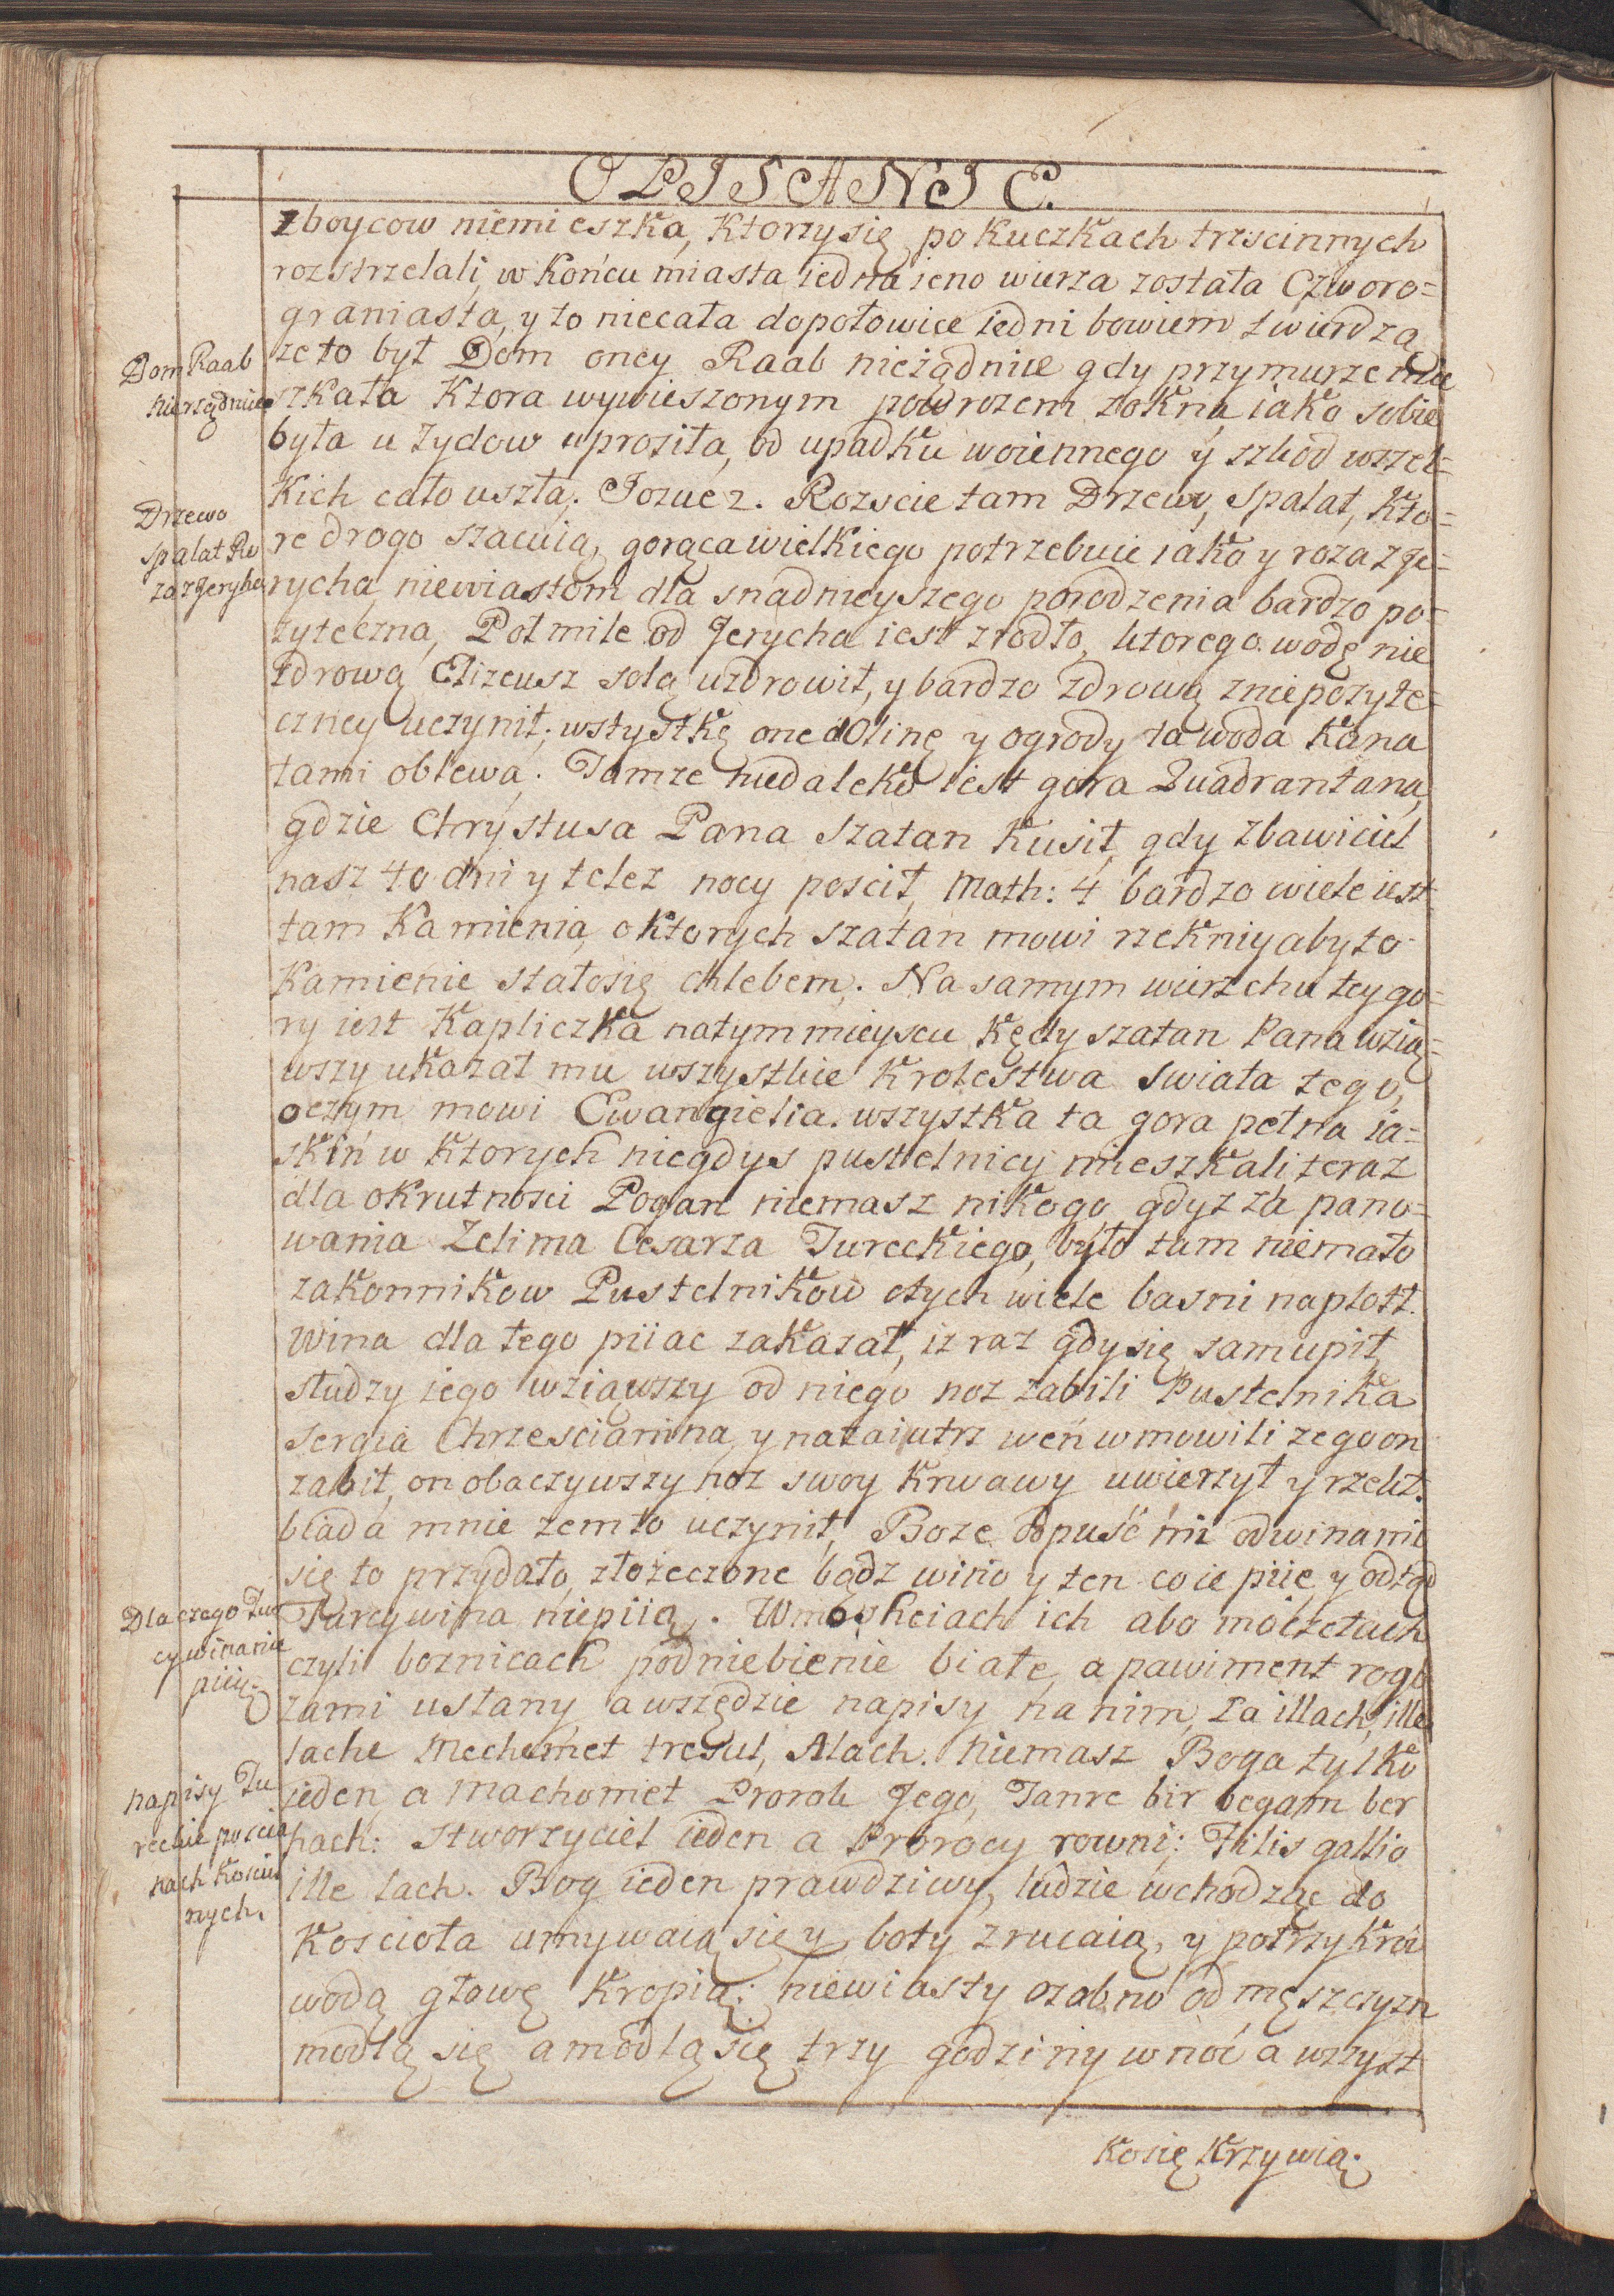 OPISANIE.
zboycow niemieszka, Ktorzy się po Kuczkach trzscinnych
rozstrzelali, w Końcu miasta iedna ieno wierza została Czworo=
graniasta, y to niecała dopołowice iedni bowiem twierdzą
Dom Raab
nierządnice
że to był Dom oney Raab nierządnice gdy przymurze mie
szkała Ktora wywieszonym powrozem zokna, iako sobie
była u Zydow uprosiła, od upadku woiennego y szkod wszel=
Kich cało uszła. Jozue 2. Rozscie tam Drzewo, Spalat, Kto=
Drzewo
spalat Ro
za z Jerycha
re drogo szacuią, gorąca wielkiego potrzebuie iako y roza z Je=
rycha, niewiastom dla snadnieyszego porodzenia bardzo po=
zyteczna, Poł mile od Jerycha iest zrodło, ktorego wodę nie
zdrową Elizeusz solą uzdrowił, y bardzo zdrową zniepozyte=
czney uczynił; wstystkę one dolinę y ogrody ta woda Kana
łami oblewa. Tamze niedaleko iest gora Quadrantana,
gdzie Chrystusa Pana Szatan Kusił, gdy Zbawiciel
nasz 40 dni y telez nocy poscił, Math: 4 bardzo wiele iest
tam Kamienia, o Ktorych szatan mowi rzekniy aby to
Kamienie stałosię chlebem. Na samym wierzchu tey go=
ry iest Kapliczka natym mieyscu Kędy szatan Pana wzią=
wszy ukazał mu wszystkie Krolestwa swiata tego,
oczym mowi Ewangielia. wszystka ta gora pełna ia=
skiń w Ktorych niegdys pustelnicy mieszkali teraz
dla okrutnosci Pogan niemasz nikogo, gdyz za pano=
wania Zelima Cesarza Tureckiego, było tam niemało
zakonnikow Pustelnikow otych wiele basni naplotł.
Wina dla tego piiac zakazał, iz raz gdy się sam upił,
słudzy iego wziąwszy od niego noz zabili Pustelnika
Sergia Chrzescianina, y nazaiutrz weń wmowili ze go on
zabił, on obaczywszy noz swoy Krwawy uwierzył y rzekł.
biada mnie zem to uczynił, Boze odpuść mi odwina mi
się to przydało, złożeczone bądz wino y ten co ie piie, y odtąd
Dlaczego Tur
cy wina nie
piią
Turcy wina niepiią. W moskciach ich abo moczetach
czyli boznicach podniebienie białe, a pawiment rogo
zami usłany, a wszędzie napisy na nim, La illach, ille
lache Mechemet tresul, Alach. Niemasz Boga tylko
napisy Tu
reckie po scia
nach Koscie
nych.
ieden a Machomet Prorok Jego, Tanre bir begam ber
hach: Stworzyciel ieden a Prorocy rowni: Filis gallio
ille lach. Bog ieden prawdziwy, ludzie wchodząc do
Koscioła umywaią się y boty zrucaią, y potrzykroć
wodą głowę Kropią; niewiasty ozabno od męszczyzn
modlą się a modlą się trzy godziny w noć a wszyst
Kosię Krzywią.